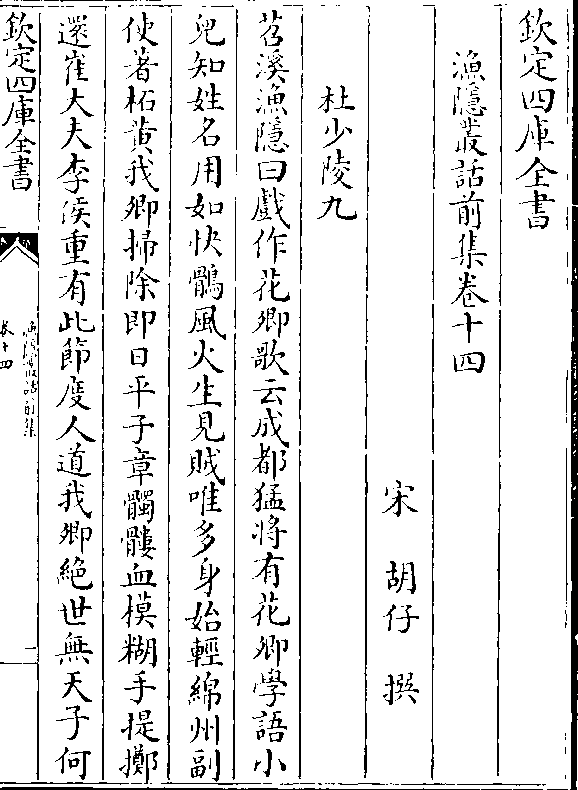 欽定四庫全書
漁隱叢話前集卷十四
宋 胡仔 撰
杜少陵九
苕溪漁隱曰戲作花卿歌云成都猛将有花卿學語小
兒知姓名用如快鶻風火生見賊唯多身始輕綿州副
使著柘黄我卿掃除即日平子章髑髏血模糊手提擲
還崔大夫李侯重有此節度人道我卿絶世無天子何
欽定四庫全書
漁隱叢話前集
卷十四
一